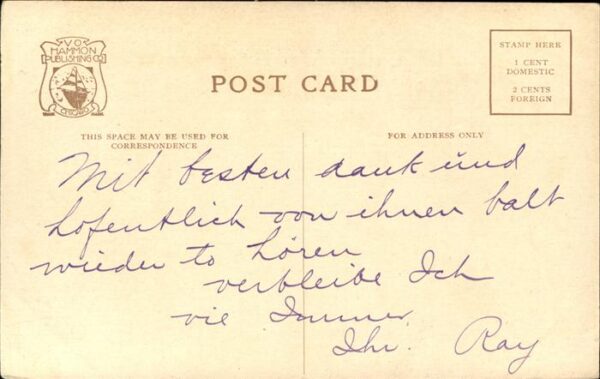 V O
HAMMON
PUBLISHING CO
CHICAGO
POST CARD
STAMP HERE
1 CENT
DOMESTIC
2 CENTS
FOREIGN
THIS SPACE MAY BE USED FOR
CORRESPONDENCE
FOR ADDRESS ONLY
Mit besten dank und
hofentlich von ihnen balt
wieder to hören
verbleibe Ich
vie Immer
Ihr. Ray